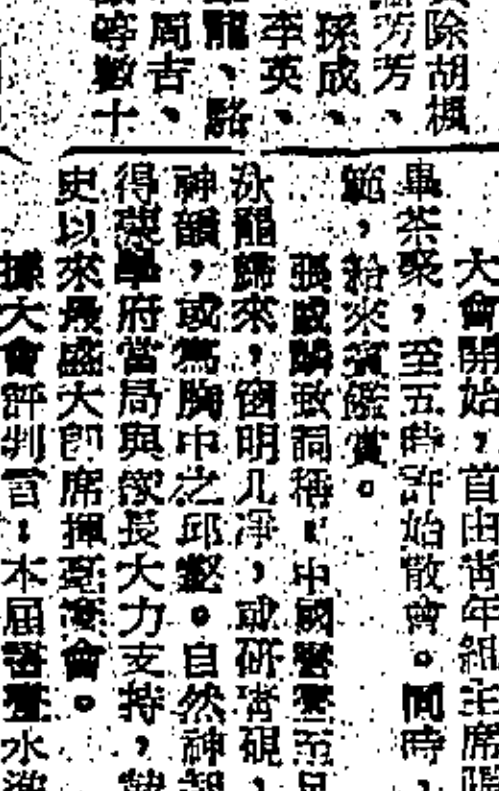 除胡楓
芳芳、
孫成、
李英、
龍、駱
周吉、
等數十
大會開始,首由青年組主席
畢茶聚,至五時許始散會。同時,
範,給來賓鑑賞。
致詞稱:中國書畫
泳罷歸來,窗明几淨,或研
神韻,或寫胸中之邱壑。自然神
得學府當局與家長大力支持,
史以來最盛大即席揮毫會。
據大會評判官:本屆書畫水準